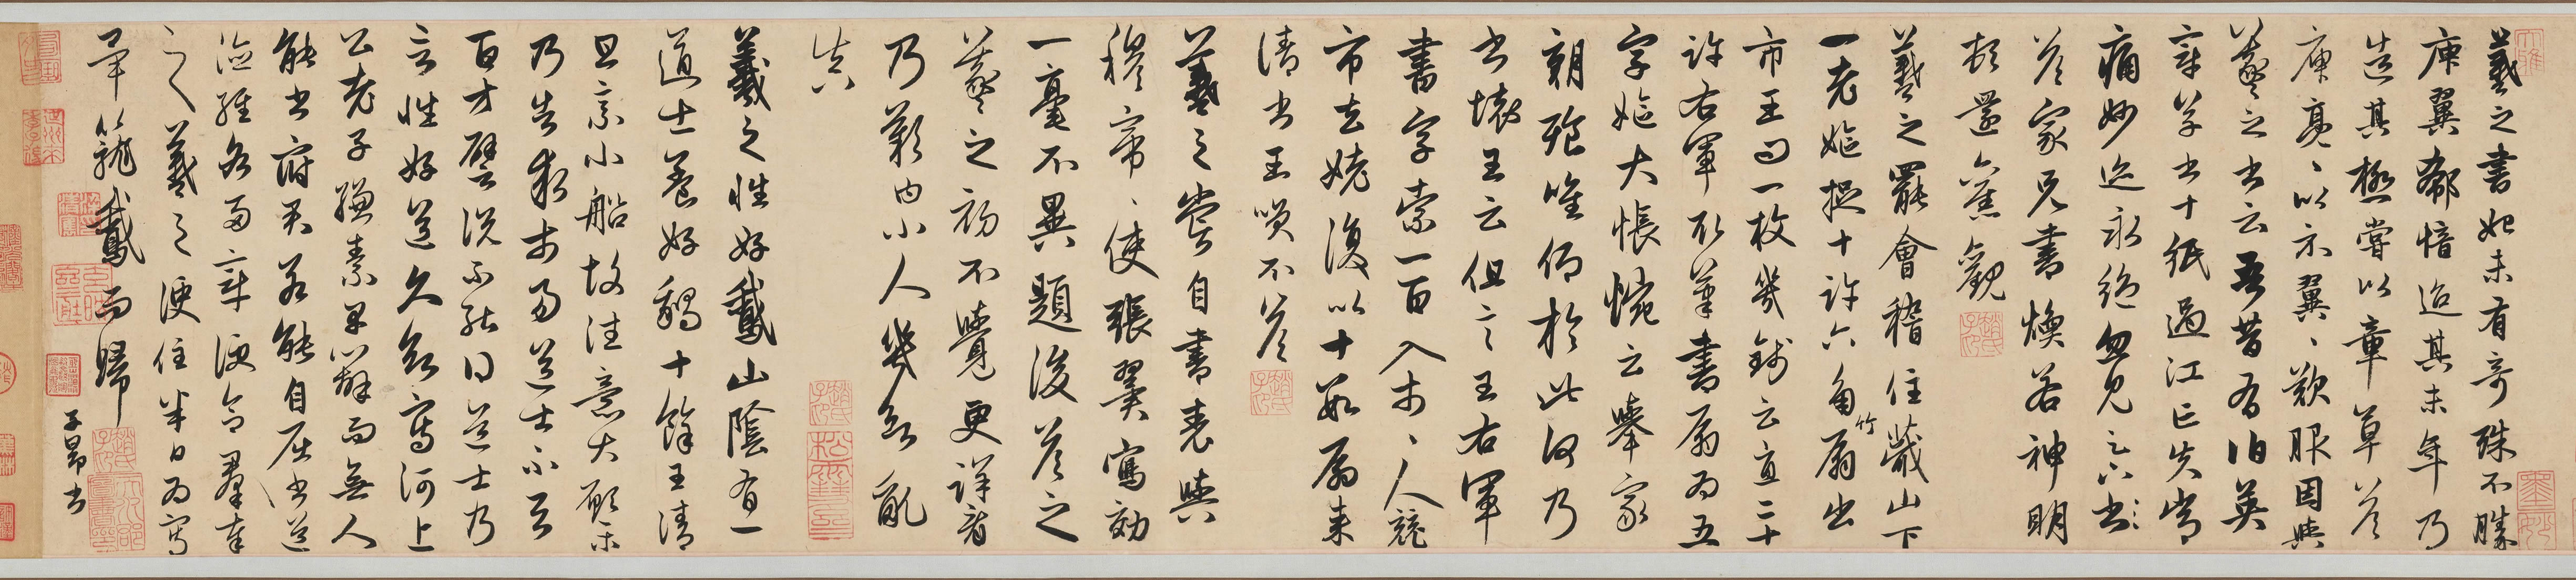 羲之書始未有奇殊不勝
庾翼郗愔迨其末年乃
造其極嘗以章草答
庾亮亮以示翼翼歎服因與
羲之書云吾昔有伯英
章草書十紙過江亡失常
痛妙迹永絕忽見足下書
答家兄書煥若神明
頓還舊觀
羲之罷會稽住蕺山下
一老嫗捉十許六角竹扇出
市王曰一枚幾錢云直二十
許右軍取筆書扇為五
字嫗大悵惋云舉家
朝飡唯仰於此何乃
書壞王云但言王右軍
書字索一百入市市人競
市去姥復以十數扇来
請書王笑不答
羲之嘗自書表與
穆帝帝使張翼寫効
一毫不異題後答之
羲之初不覺更詳看
乃歎曰小人幾欲亂
真
羲之性好鵞山陰有一
道士養好鵝十餘王清
旦乘小船故往意大願樂
乃告求市易道士不與
百方譬說不能得道士乃
言性好道久欲寫河上
公老子縑素早辦而無人
能書府君若能自屈書道
德經各兩章便合羣奉
之羲之便住半日為寫
畢籠鵞而歸
子昂書